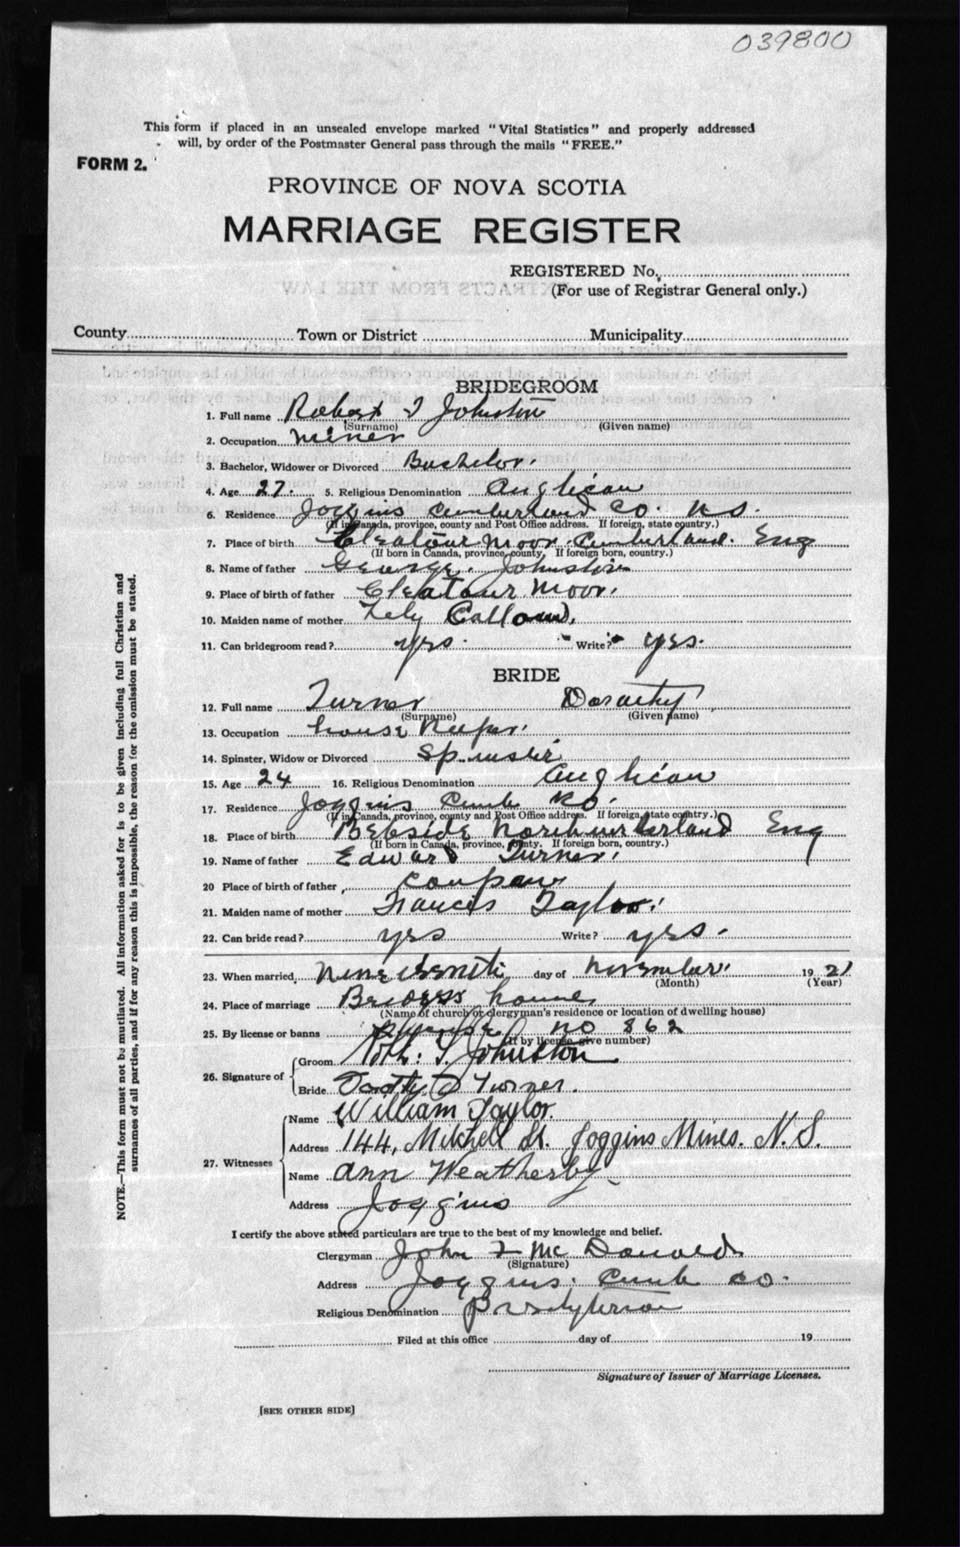 039800
This form if placed in an unsealed envelope marked "Vital Statistics" and properly addressed
will, by order of the Postmaster General pass through the mails "FREE."
FORM 2.
PROVINCE OF NOVA SCOTIA
MARRIAGE REGISTER
REGISTERED No.
(For use of Registrar General only.)
County Town or District Municipality
BRIDEGROOM
1. Full name Robert T Johnston
(Surname) (Given name)
2. Occupation miner
3. Bachelor, Widower or Divorced Bachelor.
4. Age 27. 5. Religious Denomination Anglican
6. Residence Joggins Cumberland Co. N.S.
(If in Canada, province, county and Post Office address. If foreign, state country.)
7. Place of birth Cleatour Moor. Cumberland. Eng
(If born in Canada, province, county. If foreign born, country.)
8. Name of father George. Johnston
9. Place of birth of father Cleatour Moor.
10. Maiden name of mother
11. Can bridegroom read? yes. Write? yes.
BRIDE
12. Full name Turner Dorathy
(Surname) (Given name)
13. Occupation house keeper.
14. Spinster, Widow or Divorced Spinster
15. Age 24 16. Religious Denomination Anglican
17. Residence Joggins Cumb Co.
(If in Canada, province, county and Post Office address. If foreign, state country.)
18. Place of birth Bebside Northumberland Eng
(If born in Canada, province, county. If foreign born, country.)
19. Name of father Edward Turner.
20 Place of birth of father
21. Maiden name of mother Frances Taylor.
22. Can bride read? yes Write? yes.
23. When married day of November. 1921
(Month) (Year)
24. Place of marriage Briggs house
(Name of church or clergyman's residence or location of dwelling house)
25. By license or banns no 862
(If by license, give number)
26. Signature of
Groom Robt. T. Johnston
Bride Turner.
27. Witnesses
Name William Taylor.
Address 144, Mitchell St. Joggins Mines. N.S.
Name Ann Weatherby
Address Joggins
I certify the above stated particulars are true to the best of my knowledge and belief.
Clergyman John F McDonald
(Signature)
Address Joggins. Cumb Co.
Religious Denomination Presbyterian
Filed at this office day of 19
Signature of Issuer of Marriage Licenses.
[SEE OTHER SIDE]
NOTE.—This form must not be mutilated. All information asked for is to be given including full Christian and
surnames of all parties, and if for any reason this is impossible, the reason for the omission must be stated.